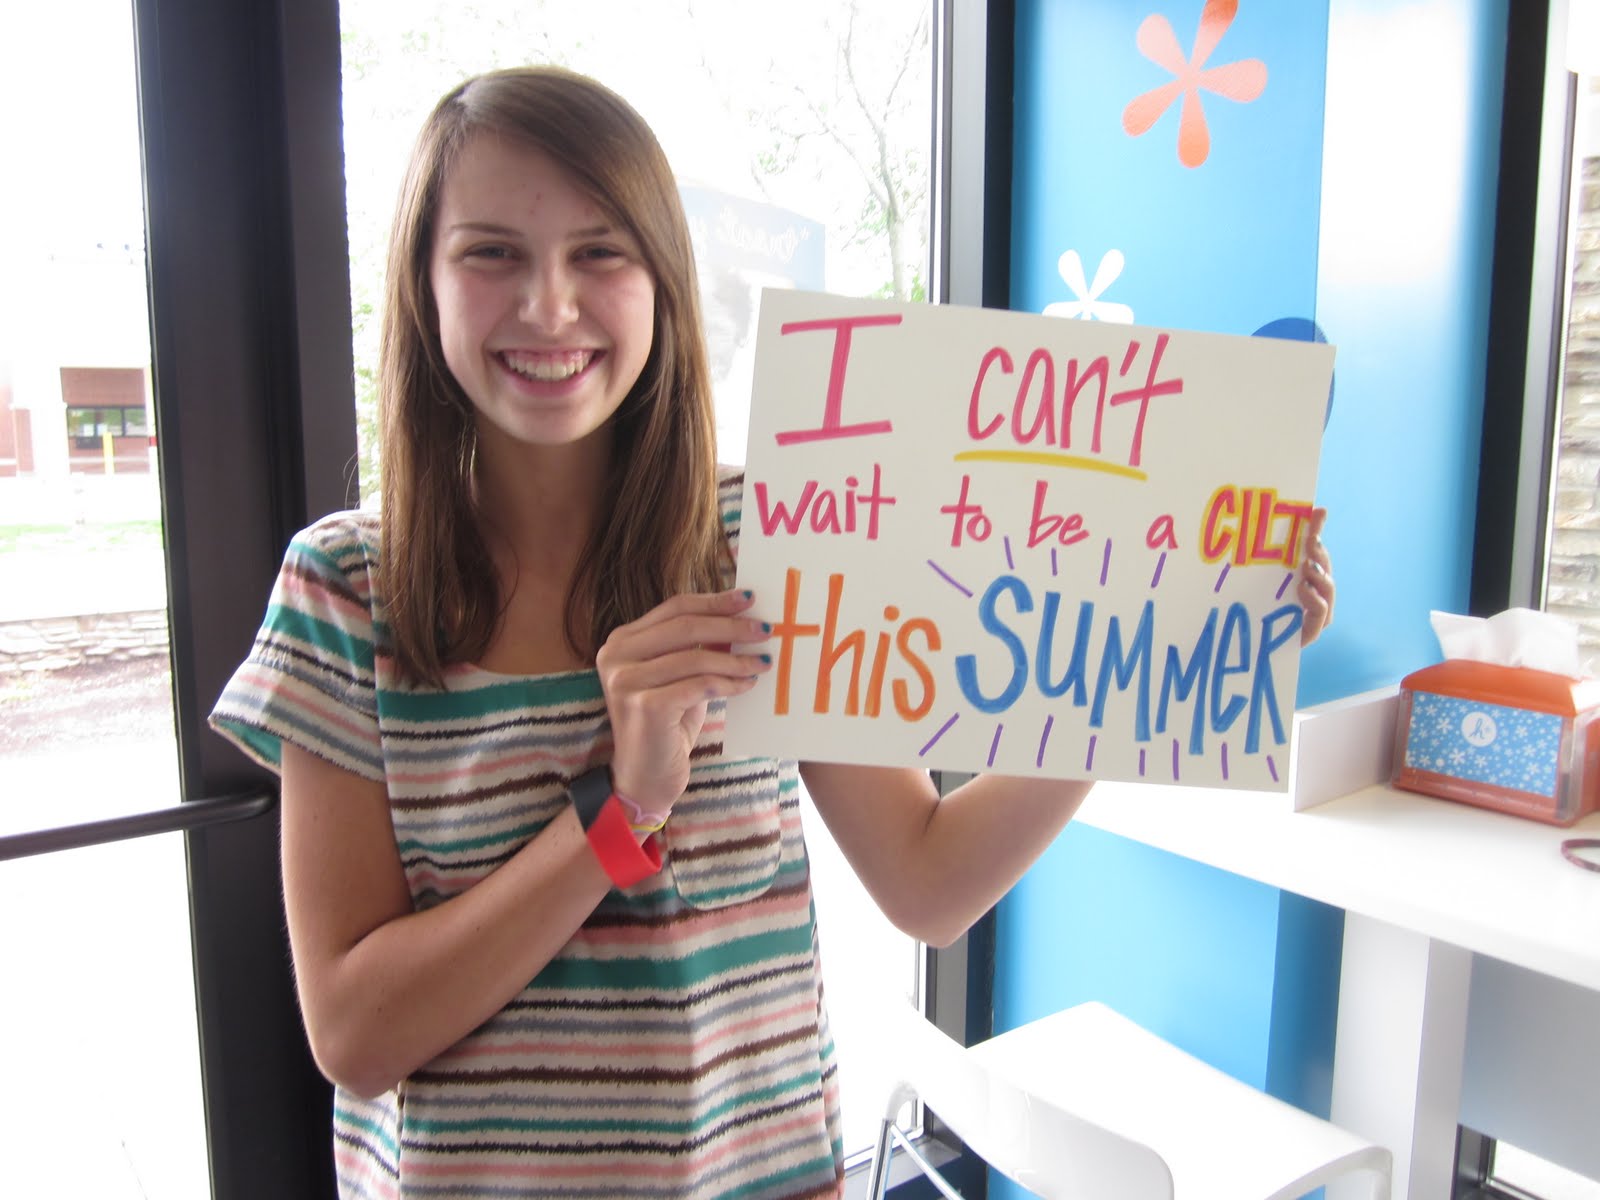 I can't
wait to be a CILT
this SUMMER
h